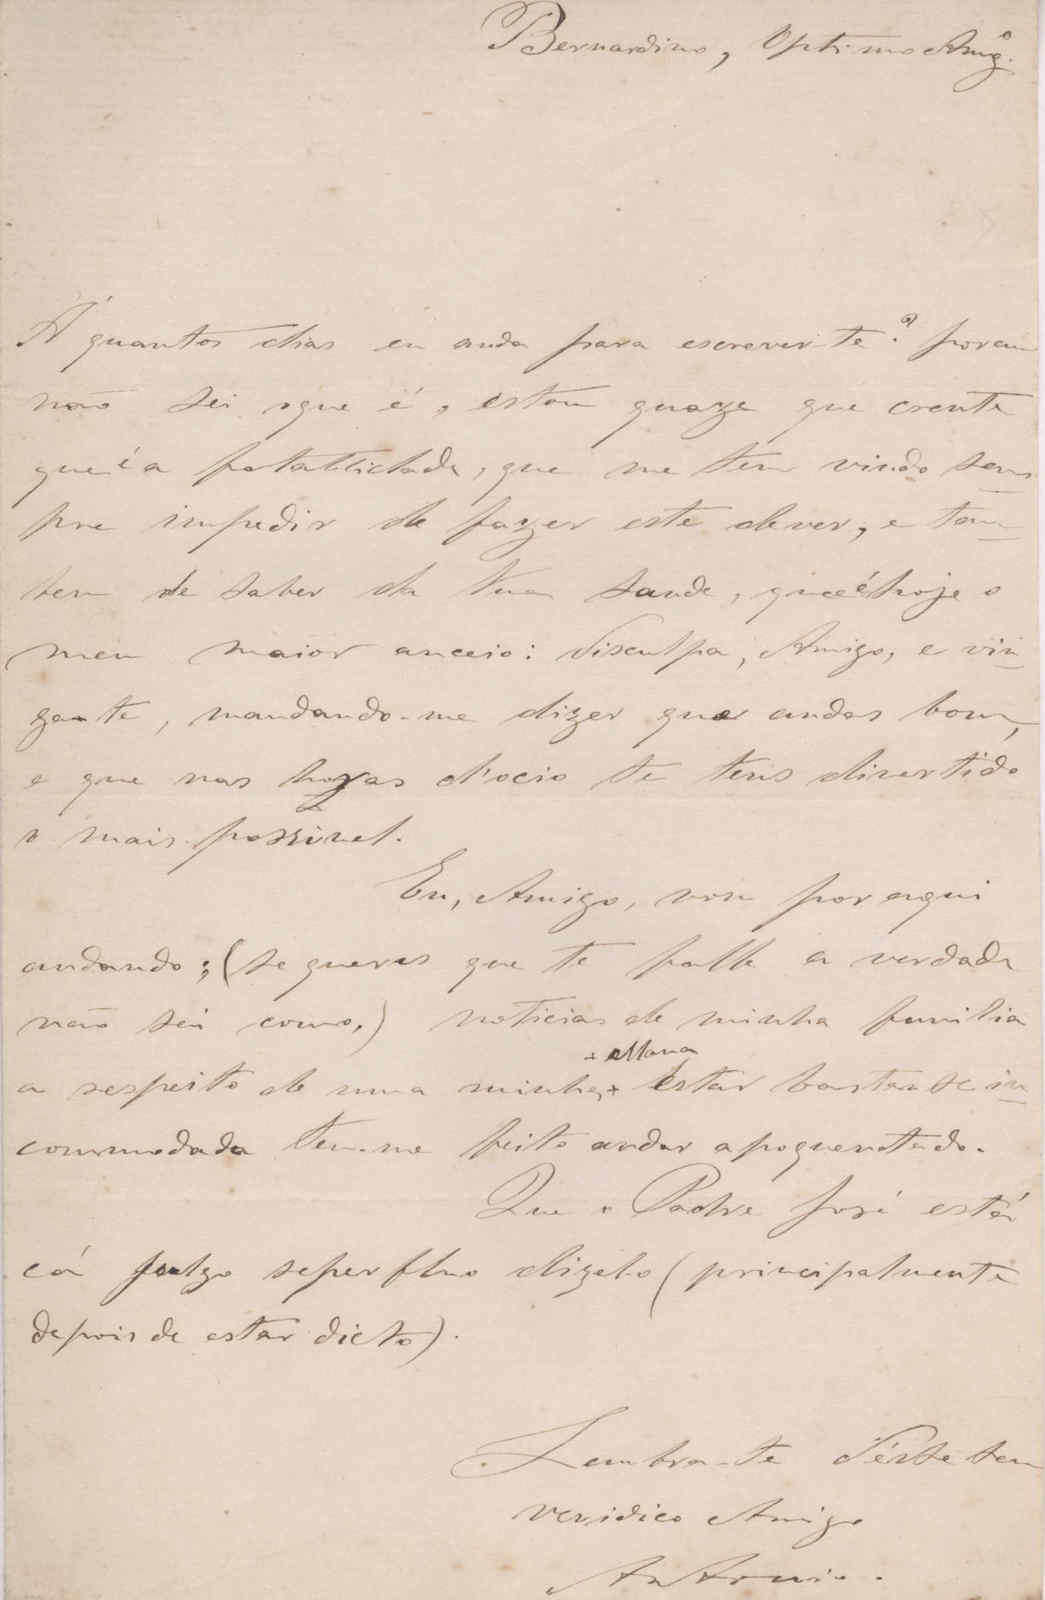 Bernardino, Optimo Amgº.
Á quantos dias eu anda para escrever-te? porem
não sei oque é, estou quaze que crente
que é a fatallidade, que me tem vindo sem-
pre impedir de fazer este dever, e tam-
bem de saber da tua saude, que é hoje o
meu maior anceio: Disculpa, Amigo, e vin-
ga-te, mandando-me dizer que andas bom,
e que nas horas d'ocio te tens divertido
o mais possivel.
Eu, Amigo, vou por aqui
andando; (se queres que te falle a verdade
não sei como,) noticias de minha familia
+ Mana
a respeito de uma minha + estar bastante in-
commodada tem-me feito andar apoquentado.
Que o Padre José está
cá julgo seperfluo dizelo (principalmente
depois de estar dicto).
Lembra-te d'éste teu
veridico Amigo
Antonio.